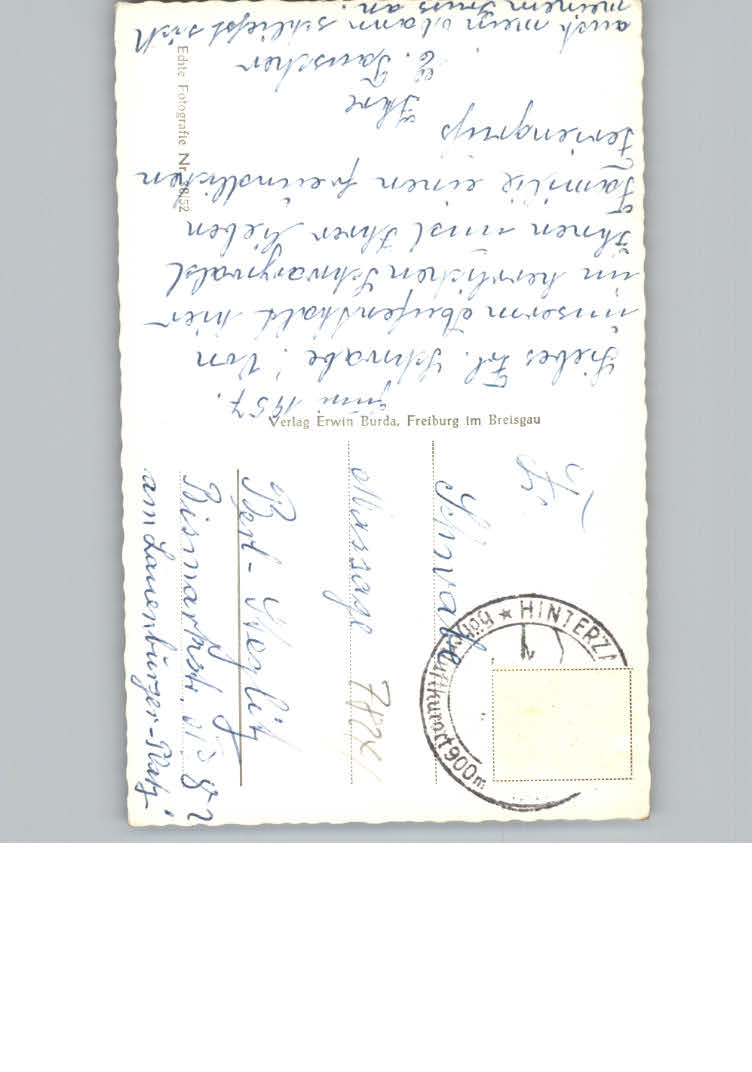 Juni 1957.
Liebes Frl. Schwabe! Von
unserm Aufenthalt hier
im herrlichen Schwarzwald
Ihnen und Ihrer lieben
Familie einen freundlichen
Feriengruß
Ihre
E. Tauscher
auch mein Mann schließt sich
meinem Gruss an.
Echte Fotografie Nr. 38/52
Verlag Erwin Burda, Freiburg im Breisgau
Frl.
Schwabe
Massage
Berl-Steglitz
Bismarckstr.
am Lauenburger-Platz
HINTERZA
Höhenluftkurort 900m